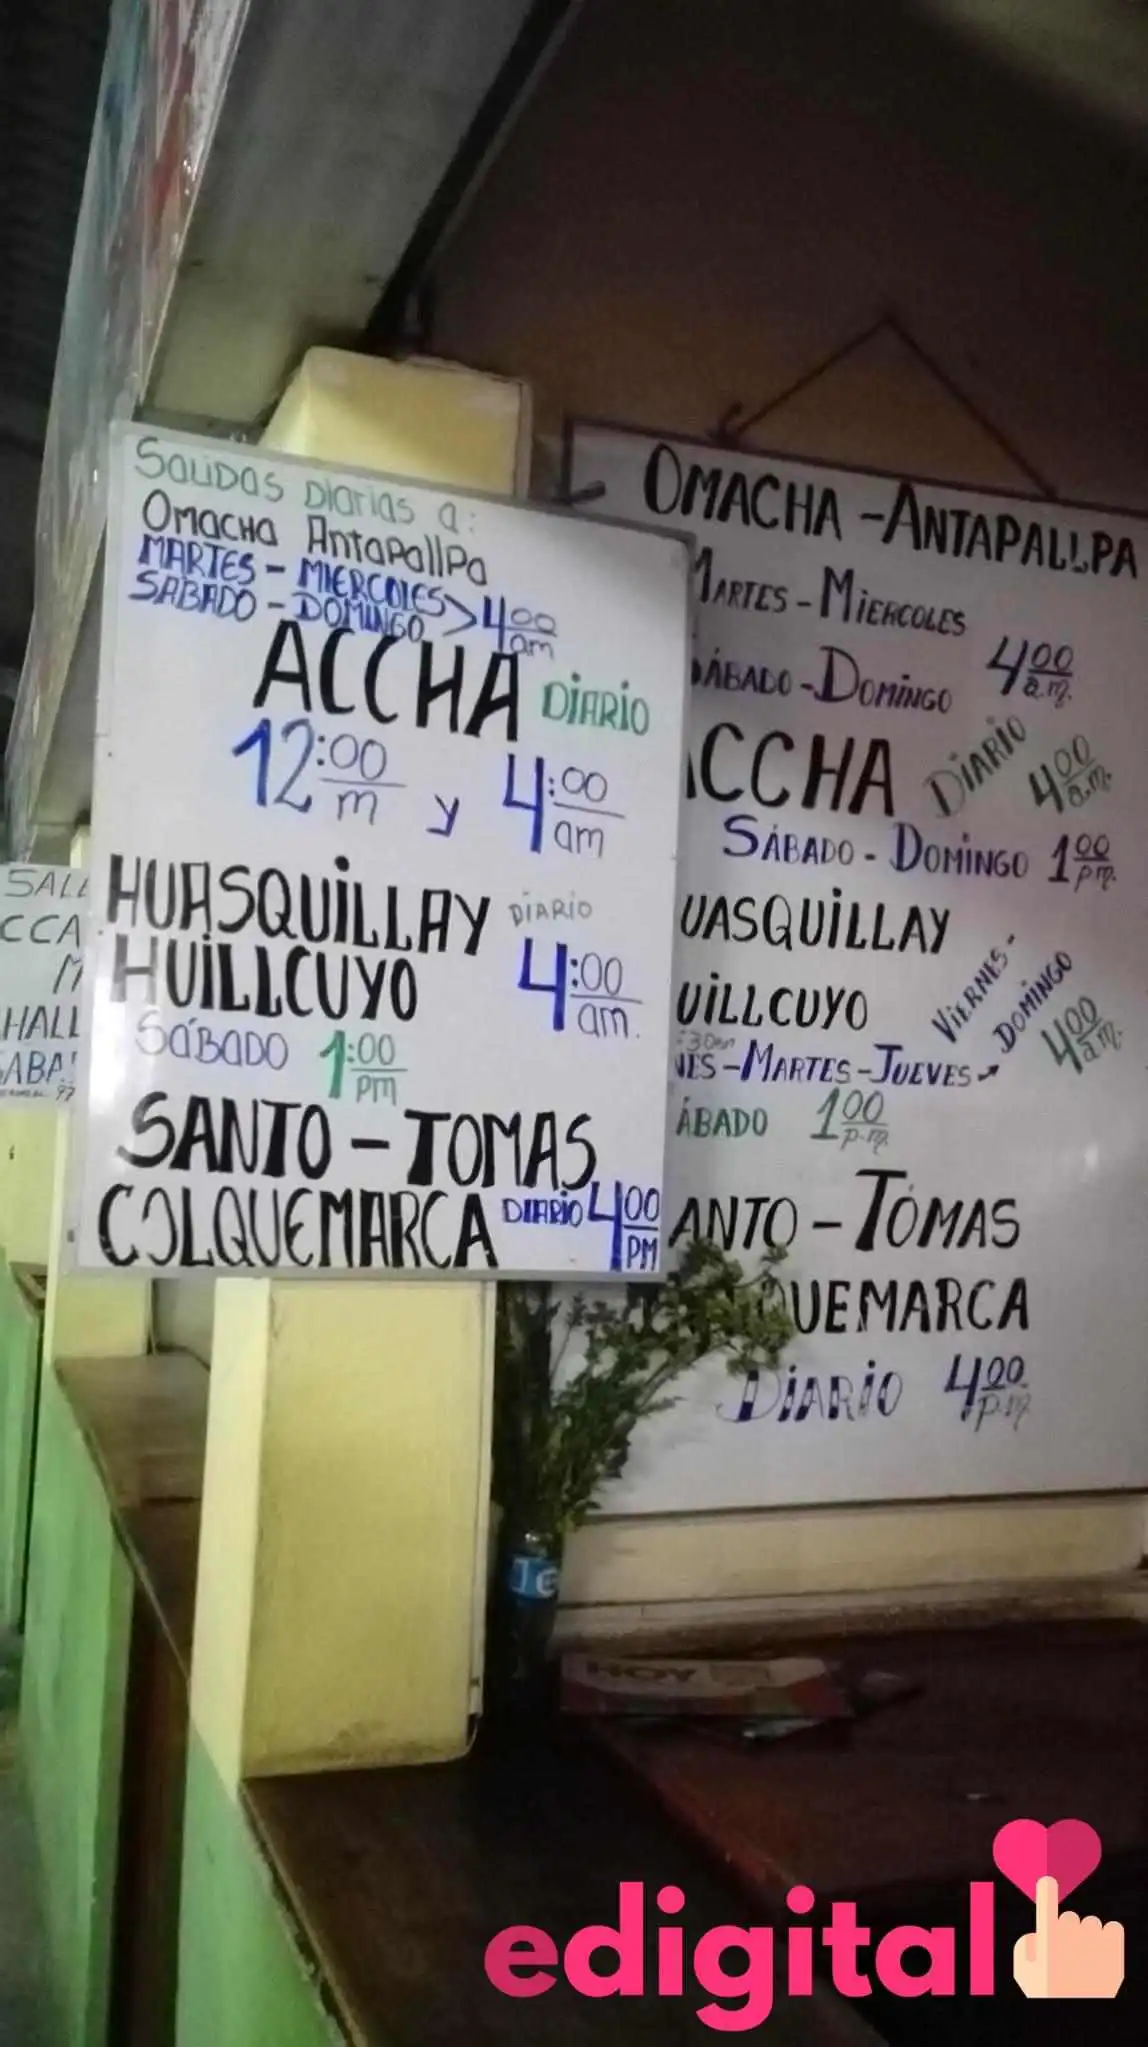 Salidas Diarias a:
Omacha Antapallpa
MARTES - MIERCOLES > 4:00 am
SABADO - DOMINGO
ACCHA DiARiO
12:00 m y 4:00 am
HUASQUiLLAY DiARiO
HUiLLCUYO 4:00 am.
SábADO 1:00 pm
SANTO - TOMAS
COLQUEMARCA DIARiO 4:00 PM
OMACHA - ANTAPALLPA
MARTES - MIERCOLES
SÁBADO - DOMiNGO 4:00 a.m.
ACCHA DiARiO 4:00 a.m.
SÁBADO - DOMiNGO 1:00 p.m.
UASQUiLLAY
UiLLCUYO
ViERNES - DOMINGO 4:00 a.m.
NES - MARTES - JUEVES
ÁBADO 1:00 p.m.
ANTO - TOMAS
QUEMARCA
DiARiO 4:00 p.m.
SALI
CCA
M
HALL
SABA
HOY
edigital